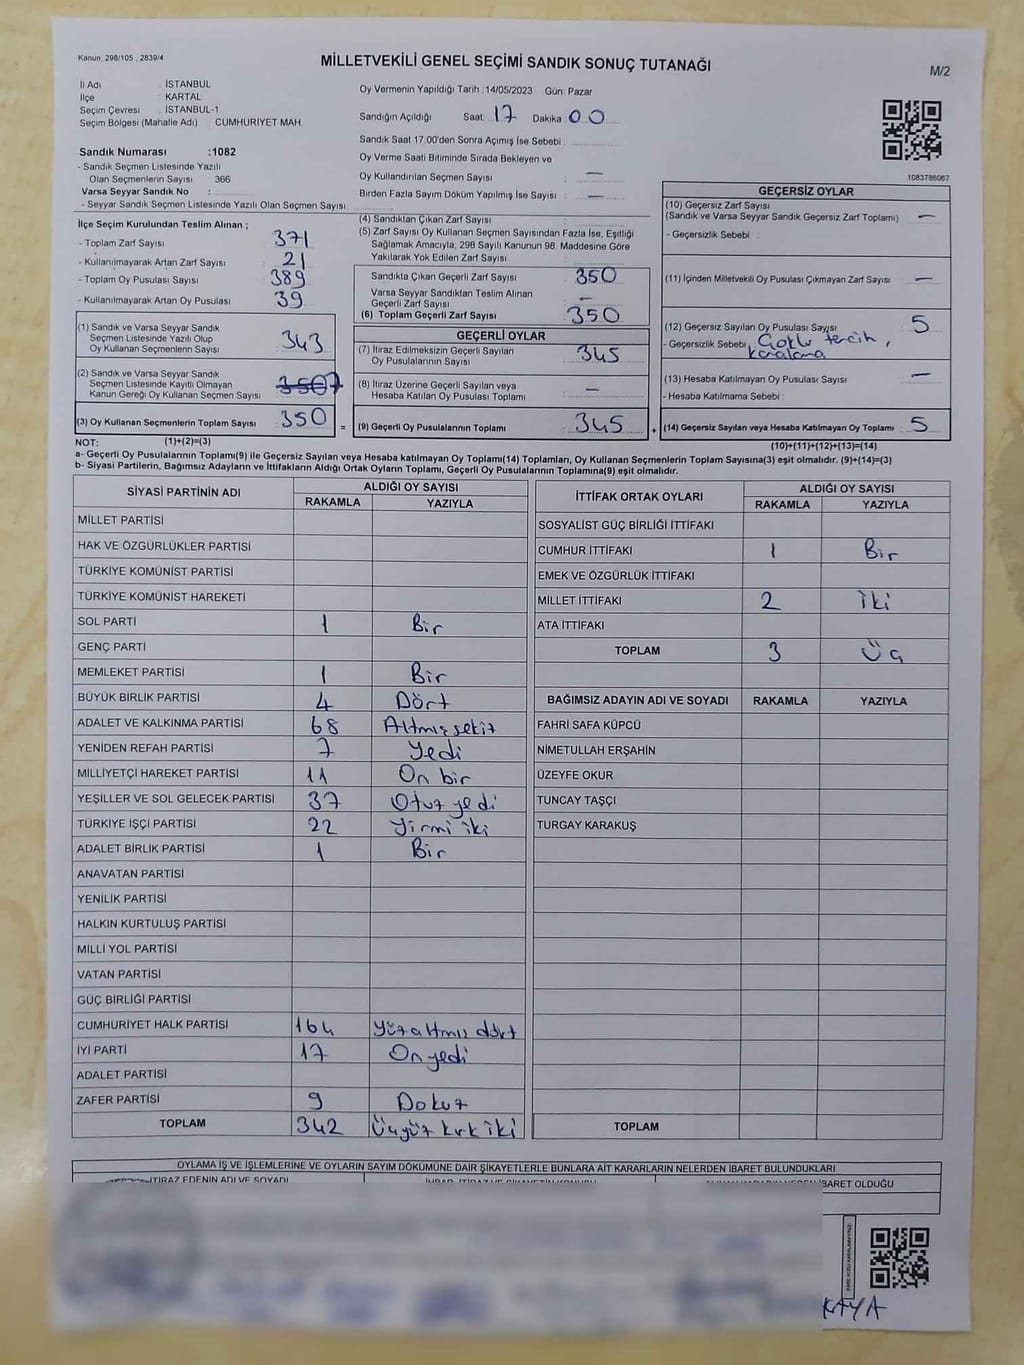 Kanun; 298/105 , 2839/4
MİLLETVEKİLİ GENEL SEÇİMİ SANDIK SONUÇ TUTANAĞI
M/2
İl Adı : İSTANBUL
İlçe : KARTAL
Seçim Çevresi : İSTANBUL-1
Seçim Bölgesi (Mahalle Adı) : CUMHURİYET MAH.
Sandık Numarası :1082
- Sandık Seçmen Listesinde Yazılı
Olan Seçmenlerin Sayısı : 366
Varsa Seyyar Sandık No :
- Seyyar Sandık Seçmen Listesinde Yazılı Olan Seçmen Sayısı:
Oy Vermenin Yapıldığı Tarih :14/05/2023 Gün: Pazar
Sandığın Açıldığı Saat: 17 Dakika: 00
Sandık Saat 17:00'den Sonra Açımış İse Sebebi :
Oy Verme Saati Bitiminde Sırada Bekleyen ve
Oy Kullandırılan Seçmen Sayısı : —
Birden Fazla Sayım Döküm Yapılmış İse Sayısı : —
1083786067
İlçe Seçim Kurulundan Teslim Alınan ;
- Toplam Zarf Sayısı : 371
- Kullanılmayarak Artan Zarf Sayısı : 21
- Toplam Oy Pusulası Sayısı : 389
- Kullanılmayarak Artan Oy Pusulası : 39
(1) Sandık ve Varsa Seyyar Sandık
Seçmen Listesinde Yazılı Olup
Oy Kullanan Seçmenlerin Sayısı : 343
(2) Sandık ve Varsa Seyyar Sandık
Seçmen Listesinde Kayıtlı Olmayan
Kanun Gereği Oy Kullanan Seçmen Sayısı : 350 7
(3) Oy Kullanan Seçmenlerin Toplam Sayısı : 350
(4) Sandıktan Çıkan Zarf Sayısı :
(5) Zarf Sayısı Oy Kullanan Seçmen Sayısından Fazla İse, Eşitliği
Sağlamak Amacıyla, 298 Sayılı Kanunun 98. Maddesine Göre
Yakılarak Yok Edilen Zarf Sayısı :
Sandıkta Çıkan Geçerli Zarf Sayısı : 350
Varsa Seyyar Sandıktan Teslim Alınan
Geçerli Zarf Sayısı : —
(6) Toplam Geçerli Zarf Sayısı : 350
GEÇERLİ OYLAR
(7) İtiraz Edilmeksizin Geçerli Sayılan
Oy Pusulalarının Sayısı : 345
(8) İtiraz Üzerine Geçerli Sayılan veya
Hesaba Katılan Oy Pusulası Toplamı : —
= (9) Geçerli Oy Pusulalarının Toplamı : 345
GEÇERSİZ OYLAR
(10) Geçersiz Zarf Sayısı
(Sandık ve Varsa Seyyar Sandık Geçersiz Zarf Toplamı) : —
- Geçersizlik Sebebi :
(11) İçinden Milletvekili Oy Pusulası Çıkmayan Zarf Sayısı : —
(12) Geçersiz Sayılan Oy Pusulası Sayısı : 5
- Geçersizlik Sebebi : Çoklu tercih,
karalama
(13) Hesaba Katılmayan Oy Pusulası Sayısı : —
- Hesaba Katılmama Sebebi :
+ (14) Geçersiz Sayılan veya Hesaba Katılmayan Oy Toplamı : 5
NOT: (1)+(2)=(3) (10)+(11)+(12)+(13)=(14)
a- Geçerli Oy Pusulalarının Toplamı(9) ile Geçersiz Sayılan veya Hesaba katılmayan Oy Toplamı(14) Toplamları, Oy Kullanan Seçmenlerin Toplam Sayısına(3) eşit olmalıdır. (9)+(14)=(3)
b- Siyasi Partilerin, Bağımsız Adayların ve İttifakların Aldığı Ortak Oyların Toplamı, Geçerli Oy Pusulalarının Toplamına(9) eşit olmalıdır.
SİYASİ PARTİNİN ADI ALDIĞI OY SAYISI
RAKAMLA YAZIYLA
MİLLET PARTİSİ
HAK VE ÖZGÜRLÜKLER PARTİSİ
TÜRKİYE KOMÜNİST PARTİSİ
TÜRKİYE KOMÜNİST HAREKETİ
SOL PARTİ 1 Bir
GENÇ PARTİ
MEMLEKET PARTİSİ 1 Bir
BÜYÜK BİRLİK PARTİSİ 4 Dört
ADALET VE KALKINMA PARTİSİ 68 Altmış sekiz
YENİDEN REFAH PARTİSİ 7 Yedi
MİLLİYETÇİ HAREKET PARTİSİ 11 On bir
YEŞİLLER VE SOL GELECEK PARTİSİ 37 Otuz yedi
TÜRKİYE İŞÇİ PARTİSİ 22 Yirmi iki
ADALET BİRLİK PARTİSİ 1 Bir
ANAVATAN PARTİSİ
YENİLİK PARTİSİ
HALKIN KURTULUŞ PARTİSİ
MİLLİ YOL PARTİSİ
VATAN PARTİSİ
GÜÇ BİRLİĞİ PARTİSİ
CUMHURİYET HALK PARTİSİ 164 Yüz altmış dört
İYİ PARTİ 17 On yedi
ADALET PARTİSİ
ZAFER PARTİSİ 9 Dokuz
TOPLAM 342 Üçyüz kırk iki
İTTİFAK ORTAK OYLARI ALDIĞI OY SAYISI
RAKAMLA YAZIYLA
SOSYALİST GÜÇ BİRLİĞİ İTTİFAKI
CUMHUR İTTİFAKI 1 Bir
EMEK VE ÖZGÜRLÜK İTTİFAKI
MİLLET İTTİFAKI 2 İki
ATA İTTİFAKI
TOPLAM 3 Üç
BAĞIMSIZ ADAYIN ADI VE SOYADI RAKAMLA YAZIYLA
FAHRİ SAFA KÜPCÜ
NİMETULLAH ERŞAHİN
ÜZEYFE OKUR
TUNCAY TAŞÇI
TURGAY KARAKUŞ
TOPLAM
OYLAMA İŞ VE İŞLEMLERİNE VE OYLARIN SAYIM DÖKÜMÜNE DAİR ŞİKAYETLERLE BUNLARA AİT KARARLARIN NELERDEN İBARET BULUNDUKLARI
İTİRAZ EDENİN ADI VE SOYADI
İBARET OLDUĞU
KAYA